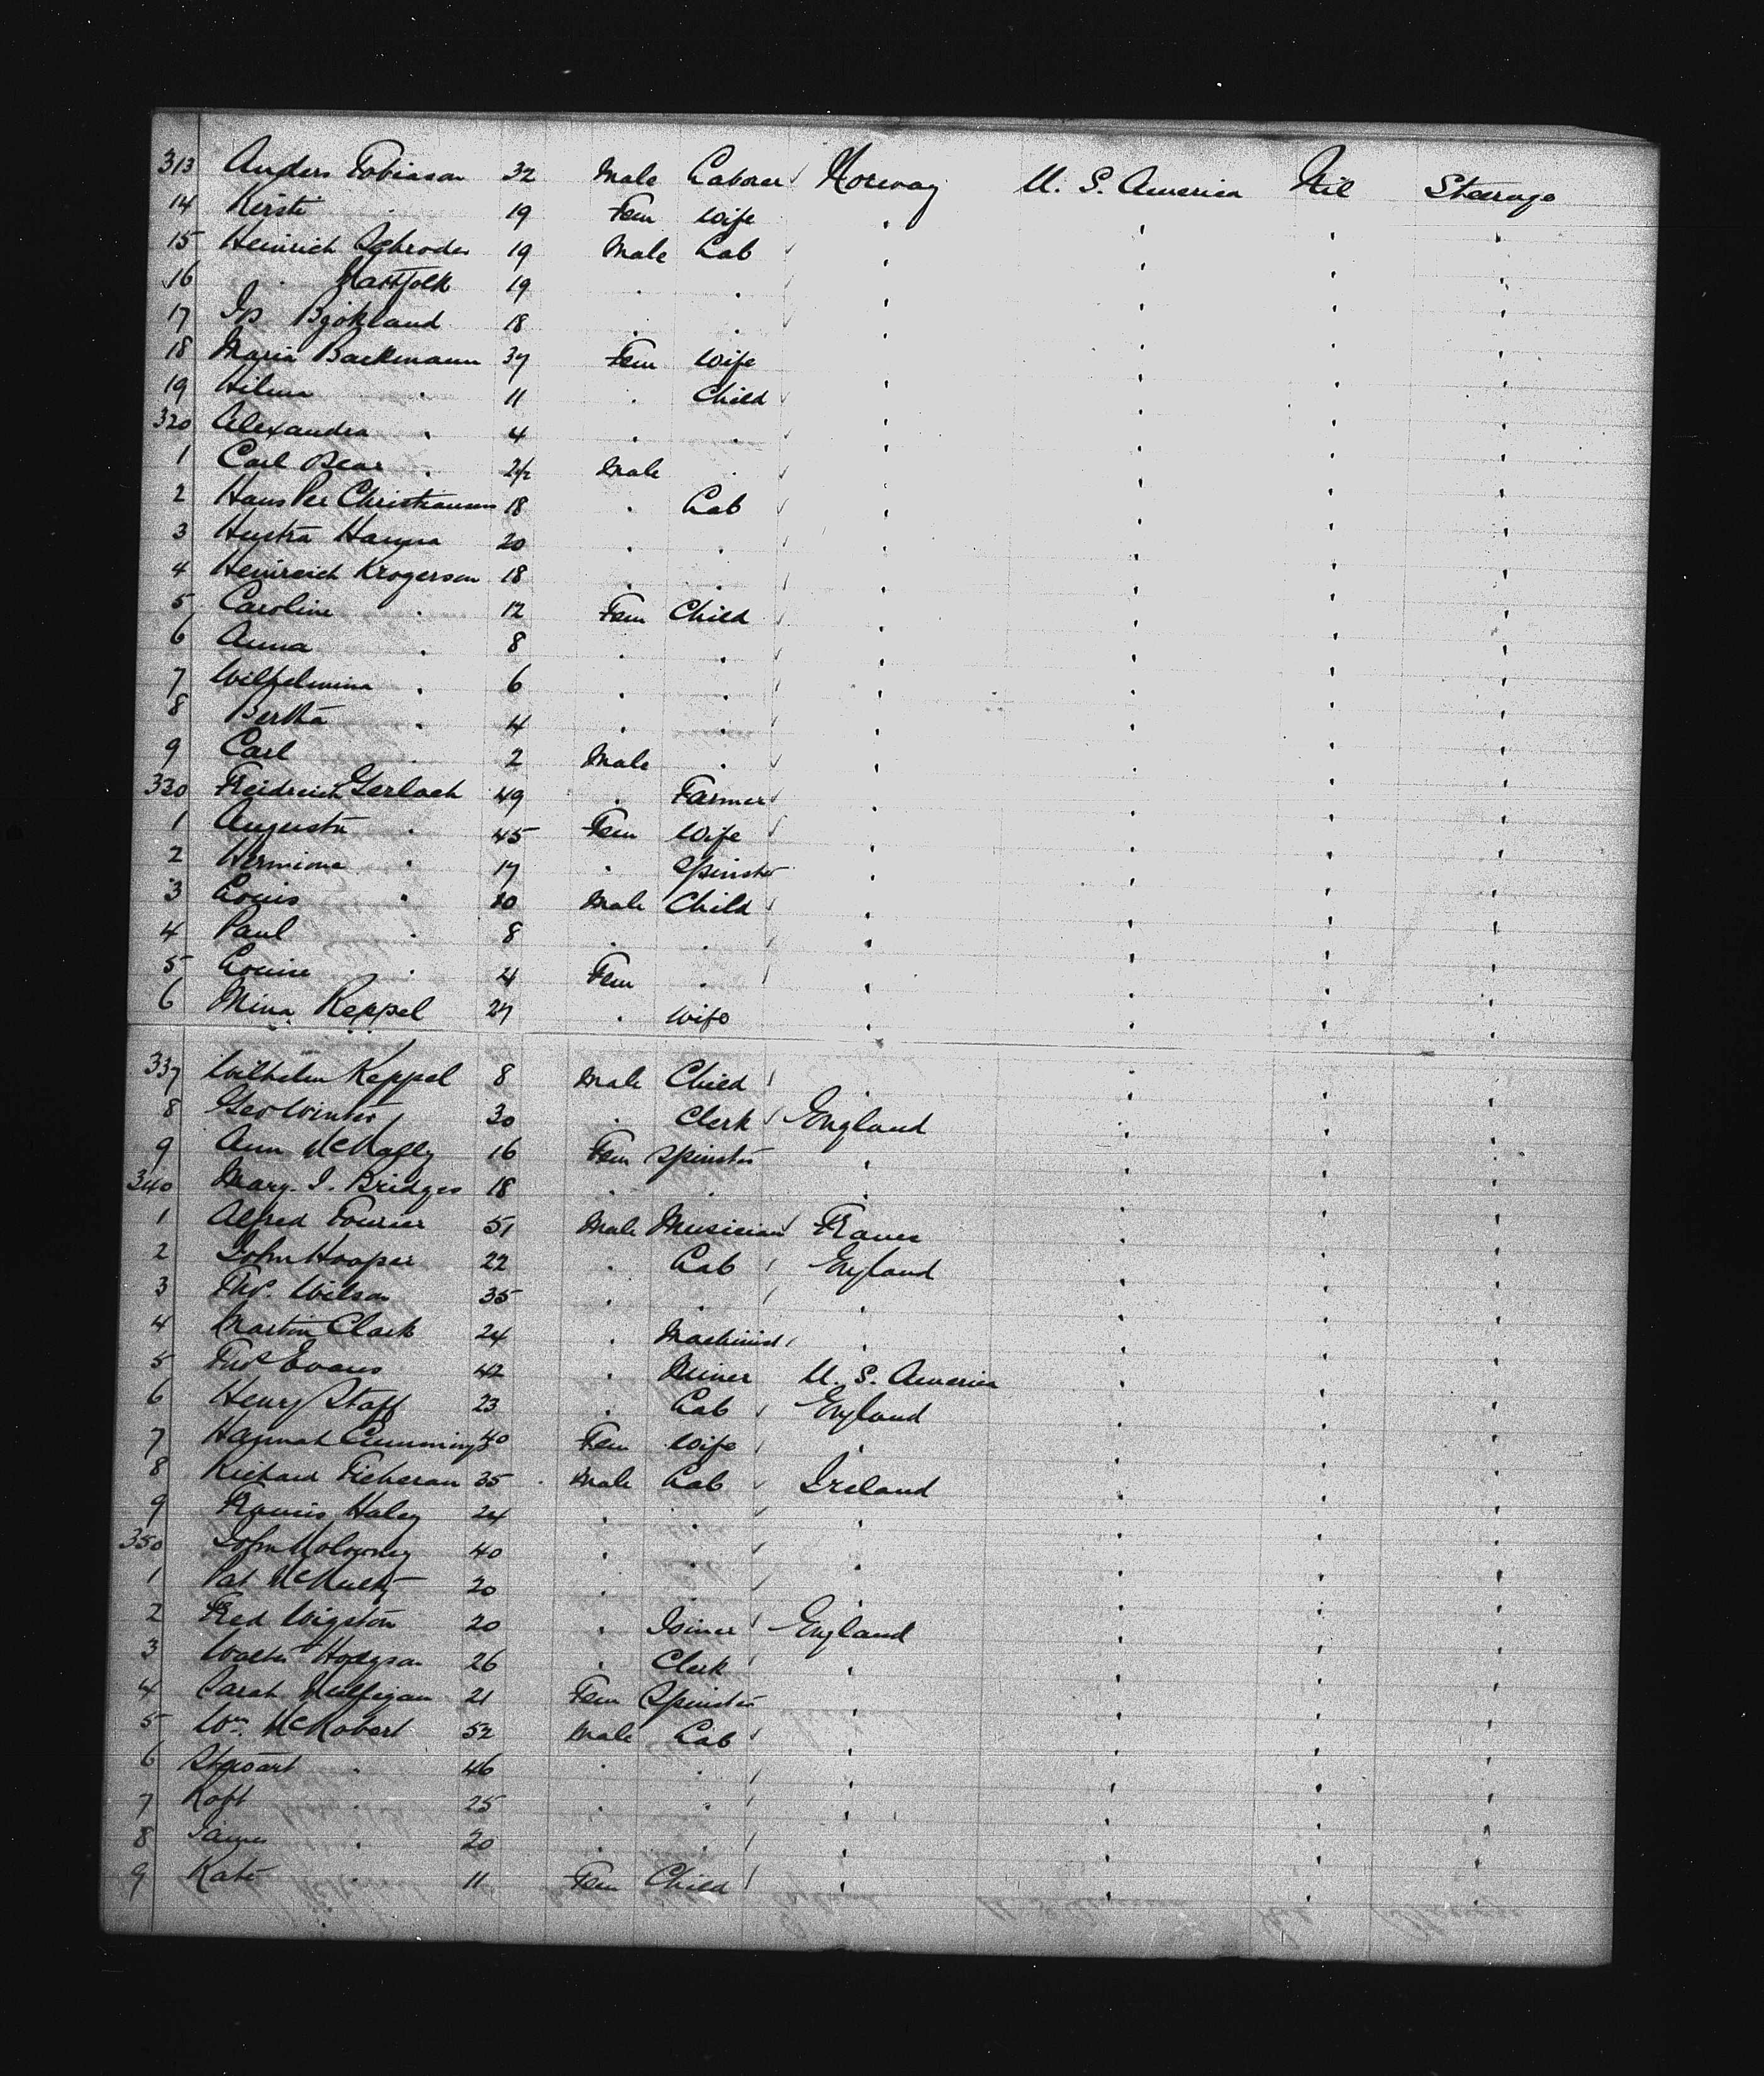 313 Anders Tobiason 32 Male Laborer Norway U. S. America Nil Steerage
14 Kersti . 19 Fem Wife ' ' ' '
15 Heinrich Schroder 19 Male Lab ' ' ' '
16 . 19 . . ' ' ' '
17 18 . . ' ' ' '
18 Maria Backmann 37 Fem Wife ' ' ' '
19 Hilma . 11 . Child ' ' ' '
320 Alexandra . 4 . . ' ' ' '
1 Carl . Male . ' ' ' '
2 Hans Per Christiansen 18 . Lab ' ' ' '
3 Hanna 20 . . ' ' ' '
4 Heinreich Krogerson 18 . . ' ' ' '
5 Caroline . 12 Fem Child ' ' ' '
6 Anna . 8 . . ' ' ' '
7 Wilhelmina . 6 . . ' ' ' '
8 Bertha . 4 . . ' ' ' '
9 Carl . 2 Male . ' ' ' '
330 Freidreich Gerlach 49 . Farmer ' ' ' '
1 Augusta . 45 Fem Wife ' ' ' '
2 Hermione . 17 . Spinster ' ' ' '
3 Louis . 10 Male Child ' ' ' '
4 Paul . 8 . . ' ' ' '
5 Louise . 4 Fem . ' ' ' '
6 Mina Keppel 27 . Wife ' ' ' '
337 Wilhelm Keppel 8 Male Child ' ' '
8 Geo Winter 30 . Clerk England ' ' '
9 Ann McNally 16 Fem Spinster ' ' ' '
340 Mary. J. Bridges 18 . . ' ' ' '
1 Alfred Fourier 51 Male Musician France ' ' '
2 John Hooper 22 . Lab England ' ' '
3 Thos. Wilson 35 . . ' ' ' '
4 Martin Clark 24 . Machinist ' ' ' '
5 Thos Evans 42 . Miner U. S. America ' ' '
6 Henry Staff 23 . Lab England ' ' '
7 Hannah Cummings 40 Fem Wife ' ' ' '
8 Richard 35 Male Lab Ireland ' ' '
9 Francis Haley 24 . . ' ' ' '
350 John Molowney 40 . . ' ' ' '
1 Pat McNulty 20 . . ' ' ' '
2 Fred Wigston 20 . Joiner England ' ' '
3 Walter Hodgson 26 . Clerk ' ' ' '
4 Sarah Mulligan 21 Fem Spinster ' ' ' '
5 Wm. McRobert 52 Male Lab ' ' ' '
6 Stewart . 46 . . ' ' ' '
7 Robt . 25 . . ' ' ' '
8 James . 20 . . ' ' ' '
9 Kate . 11 Fem Child ' ' ' '